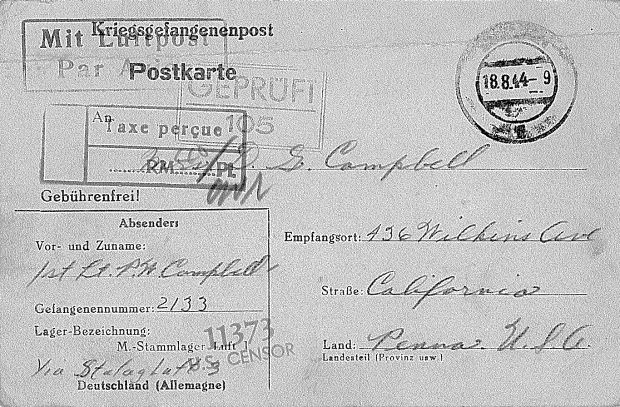 Kriegsgefangenenpost
Mit Luftpost
Par Avion
Postkarte
GEPRÜFT
105
18.8.44-9
An
Taxe perçue
RM Pf.
D. G. Campbell
Gebührenfrei!
Absender:
Vor- und Zuname:
1st Lt. P. W. Campbell
Gefangenennummer: 2133
Lager-Bezeichnung:
M.-Stammlager Luft
Via Stalagluft 3
Deutschland (Allemagne)
11373
U.S. CENSOR
Empfangsort: 436 Wilkins Ave
Straße: California
Land: Penna. U.S.A.
Landesteil (Provinz usw.)